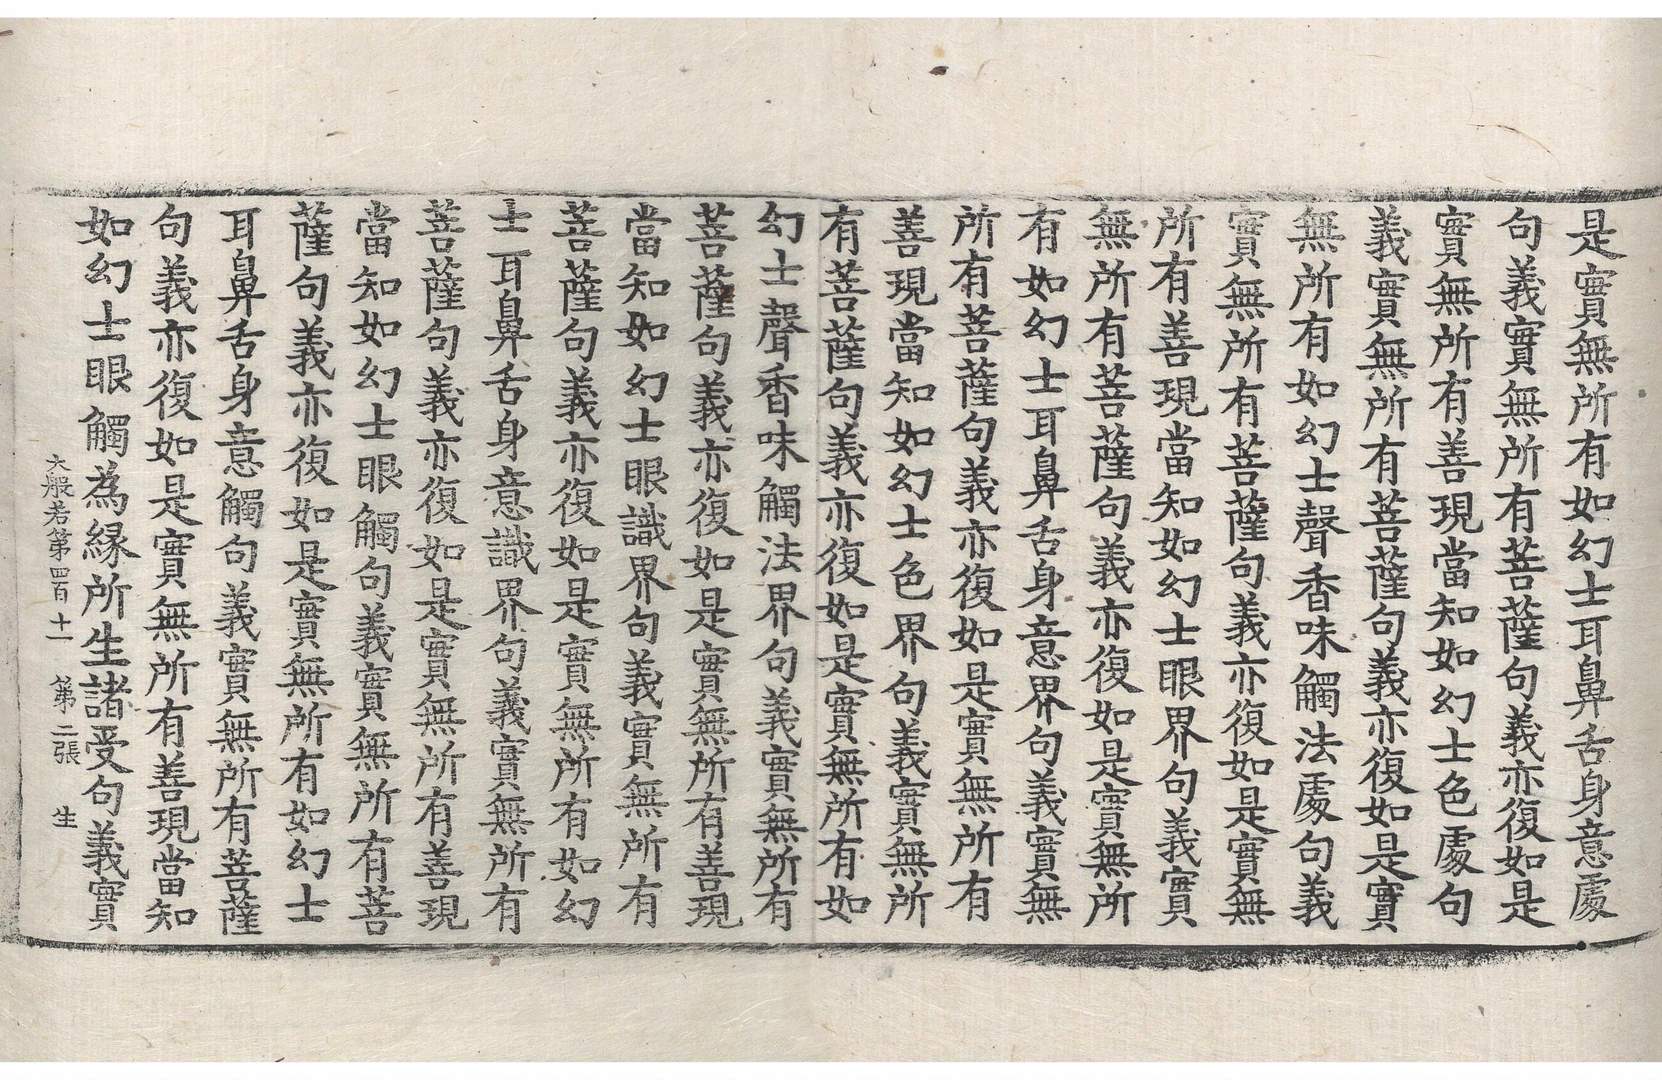 是實無所有如幻士耳鼻舌身意處
句義實無所有菩薩句義亦復如是
實無所有善現當知如幻士色處句
義實無所有菩薩句義亦復如是實
無所有如幻士聲香味觸法處句義
實無所有菩薩句義亦復如是實無
所有善現當知如幻士眼界句義實
無所有菩薩句義亦復如是實無所
有如幻士耳鼻舌身意界句義實無
所有菩薩句義亦復如是實無所有
善現當知如幻士色界句義實無所
有菩薩句義亦復如是實無所有如
幻士聲香味觸法界句義實無所有
菩薩句義亦復如是實無所有善現
當知如幻士眼識界句義實無所有
菩薩句義亦復如是實無所有如幻
士耳鼻舌身意識界句義實無所有
菩薩句義亦復如是實無所有善現
當知如幻士眼觸句義實無所有菩
薩句義亦復如是實無所有如幻士
耳鼻舌身意觸句義實無所有菩薩
句義亦復如是實無所有善現當知
如幻士眼觸為緣所生諸受句義實
大般若第四百十一 第二張 生